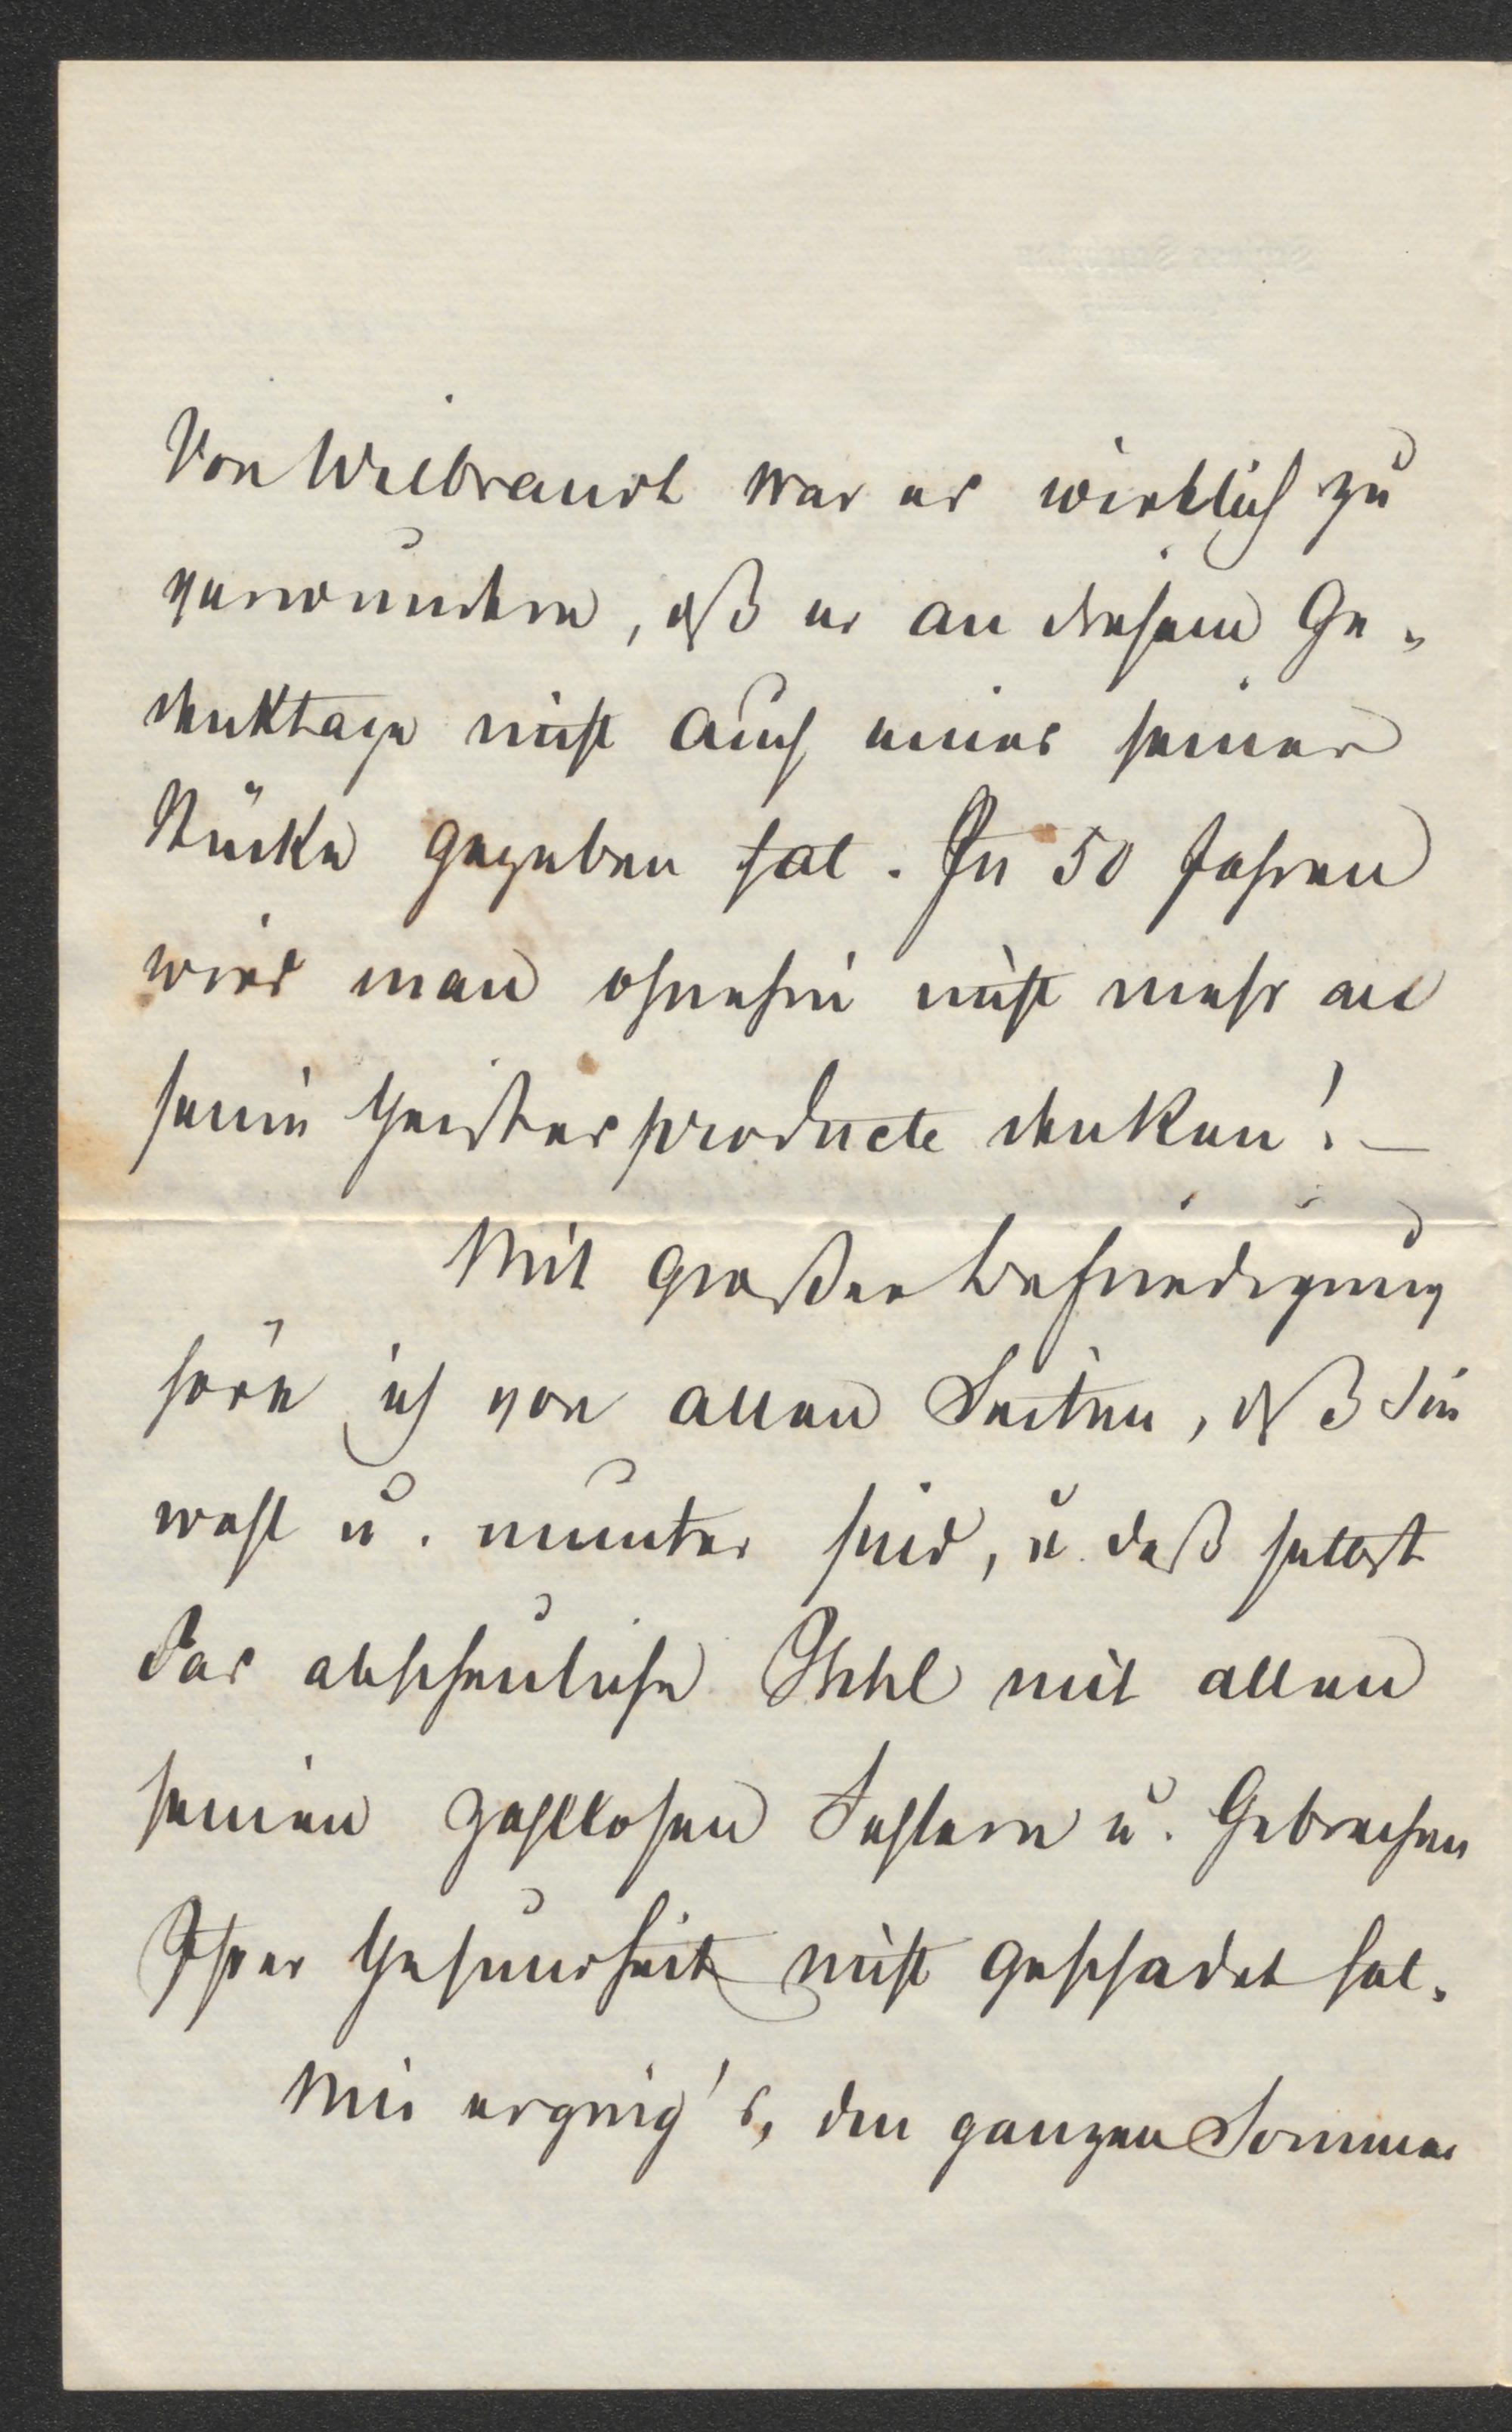 Von Wilbrandt war es wirklich zu
verwundern, dß er an diesem Ge-
denktage nicht auch eines seiner
Stücke gegeben hat. In 50 Jahren
wird man ohnehin nicht mehr an
seine Geistesproducte denken! –
Mit großer Befriedigung
höre ich von allen Seiten, dß Sie
wohl u. munter sind, u. daß selbst
das abscheuliche Ischl mit allen
seinen zahllosen Fehlern u. Gebrechen
Ihrer Gesundheit nicht geschadet hat.
Mir erging's, den ganzen Sommer